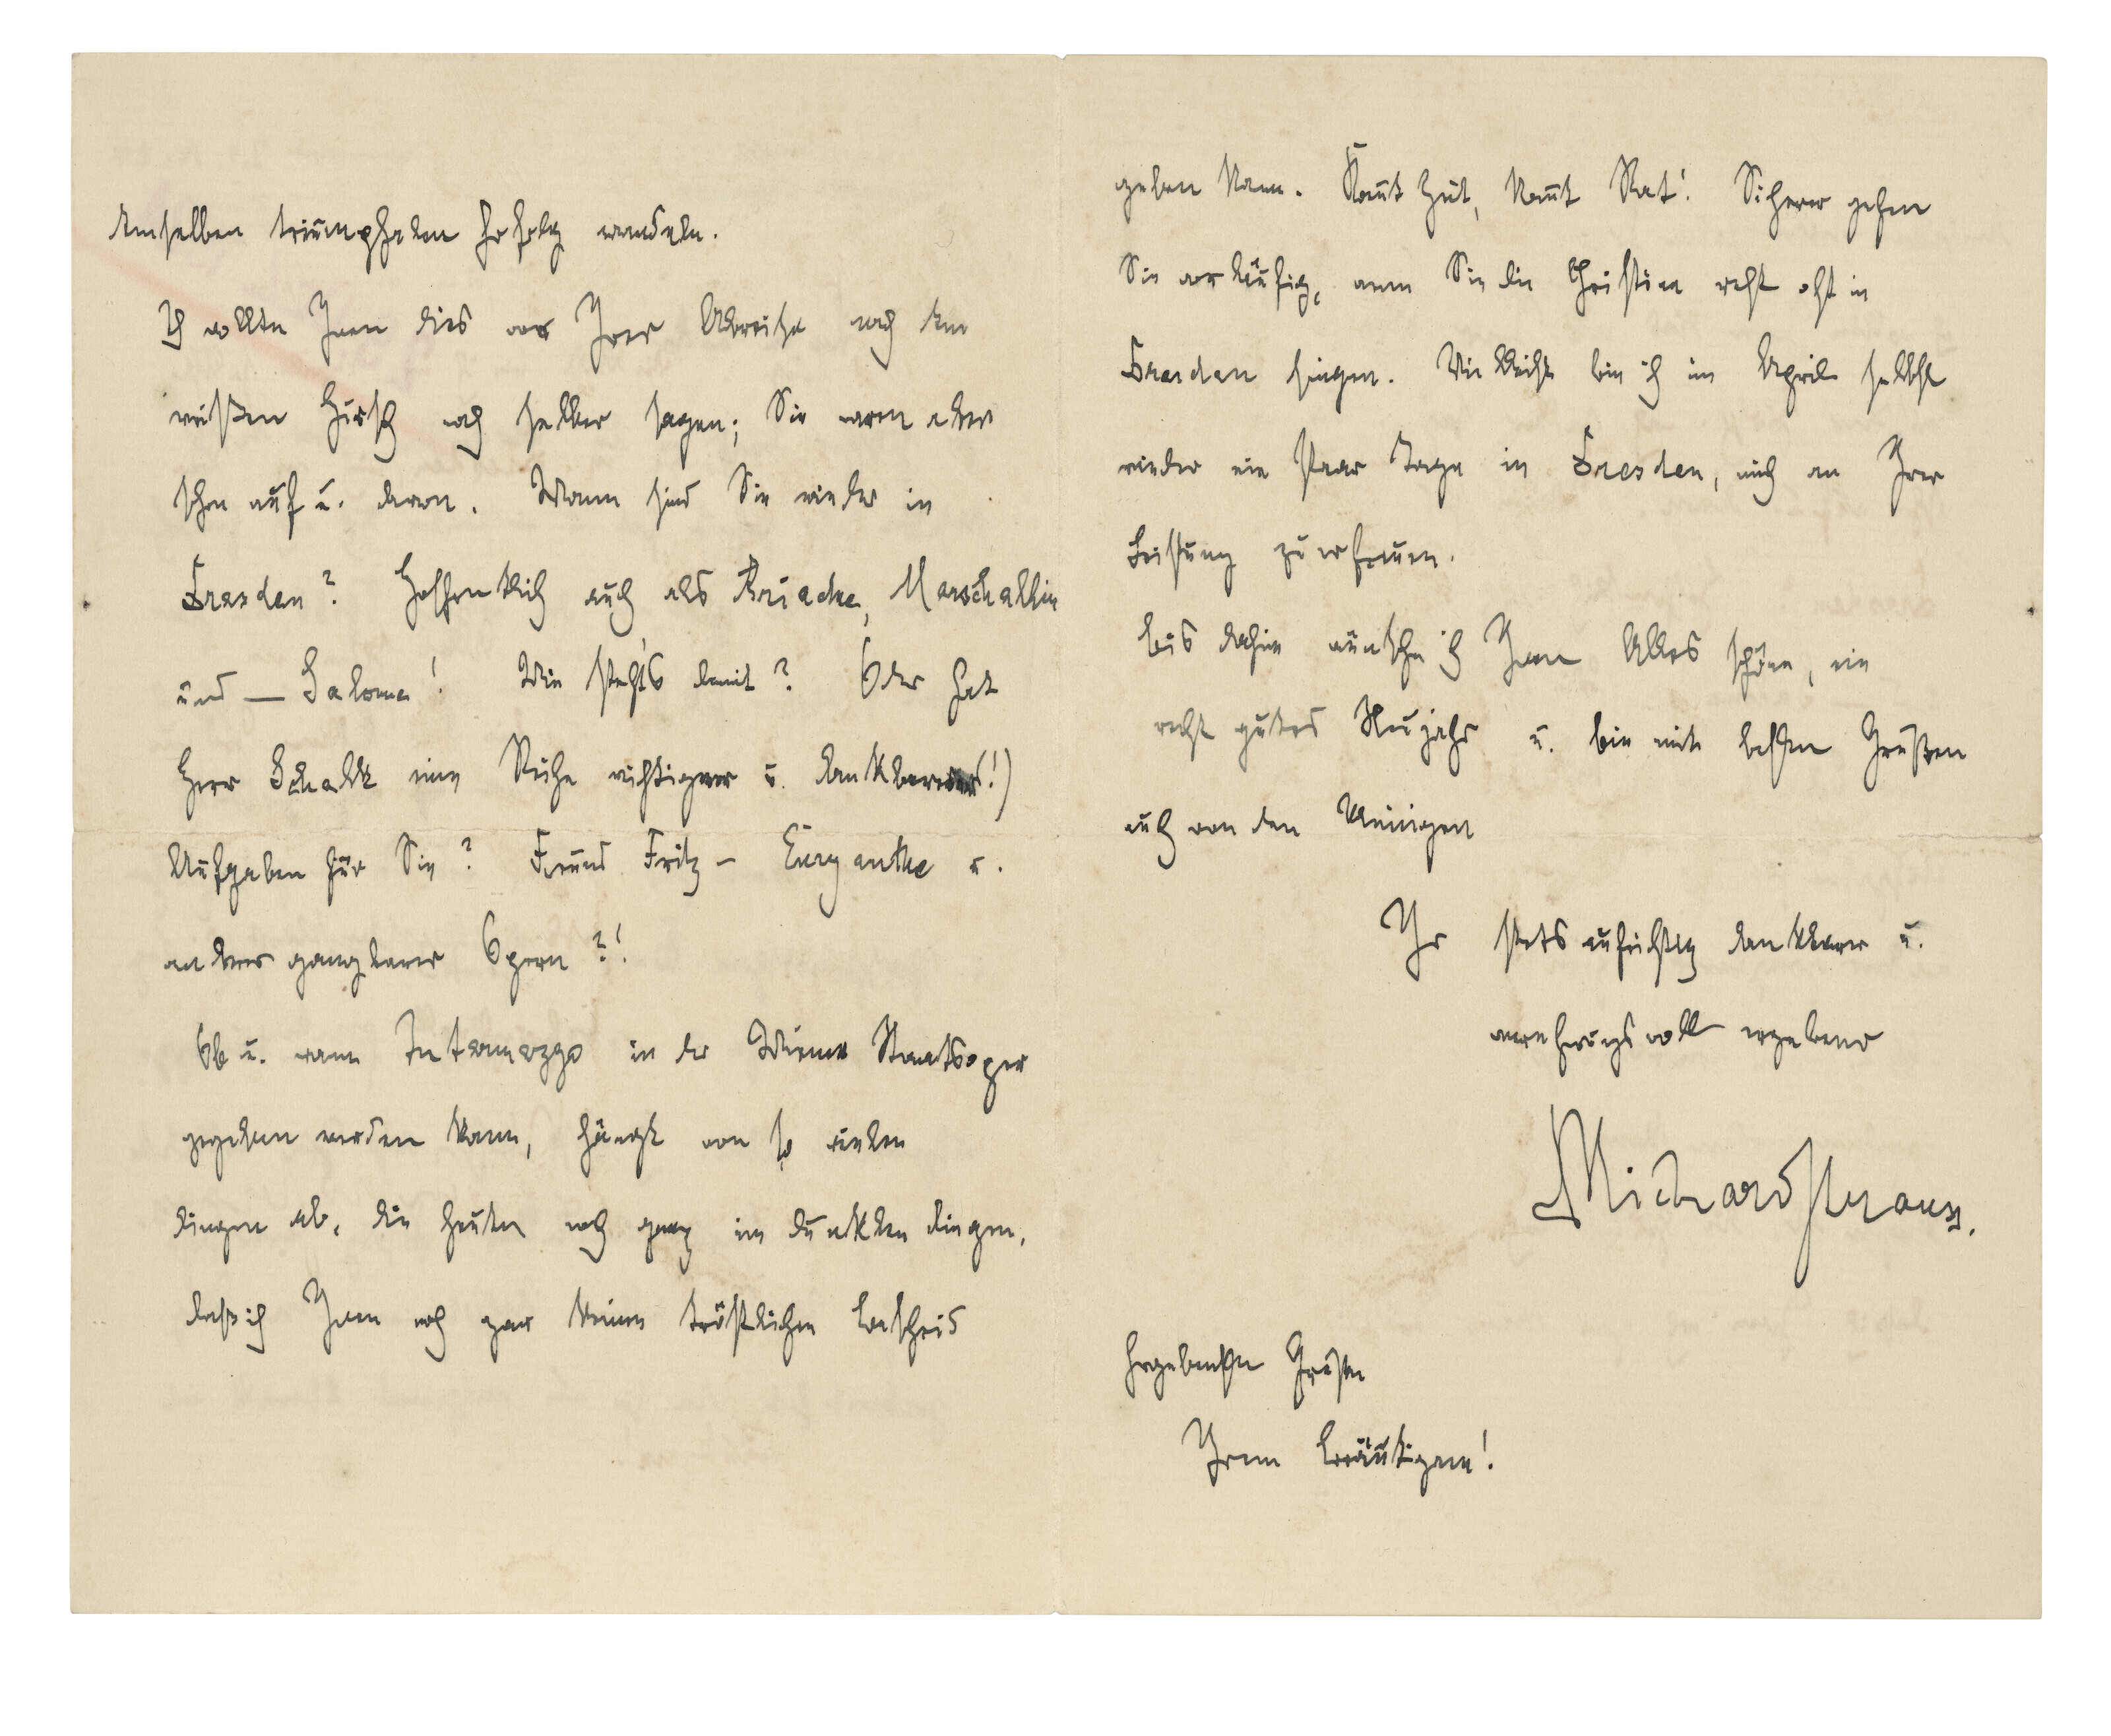 demselben triumphalen Erfolg wandeln.
Ich wollte Ihnen dies vor Ihrer Abreise nach dem
weißen Hirsch noch selber sagen; Sie waren aber
schon auf u. davon. Wann sind Sie wieder in
Dresden? Hoffentlich auch als Ariadne, Marschallin
und — Salome! Wie steht's damit? Oder hat
Herr Schalk eine Reihe wichtigerer u. dankbarerer(!)
Aufgaben für Sie? Freund Fritz – Euryanthe u.
andere gangbarer Opern?!
Ob u. wann Intermezzo in der Wiener Staatsoper
gegeben werden kann, hängt von so vielen
Dingen ab, die heute noch ganz im Dunklen liegen,
daß ich Ihnen noch gar keinen tröstlichen Bescheid
geben kann. Kommt Zeit, kommt Rat! Sicherer gehen
Sie vorläufig, wenn Sie die Christine recht oft in
Dresden singen. Vielleicht bin ich im April selbst
wieder ein paar Tage in Dresden, mich an Ihrer
Leistung zu erfreuen.
Bis dahin wünsche ich Ihnen Alles schöne, ein
recht gutes Neujahr u. bin mit besten Grüßen
auch von den Meinigen
Ihr stets aufrichtig dankbarer u.
verehrungsvoll ergebener
Richard Strauss.
Ergebenste Grüße
Ihrem Bräutigam!